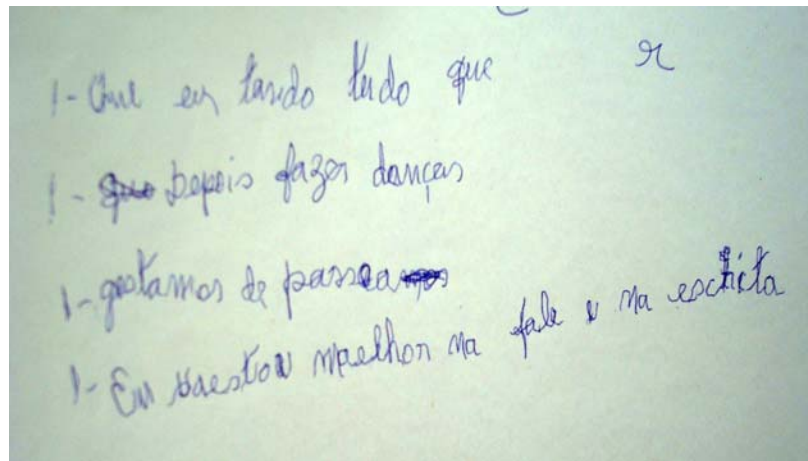 1- Que eu tando tudo que r
1- Depois fazer danças
1- gostamos de passea
1- Eu baestou maelhor na fale e na eschita